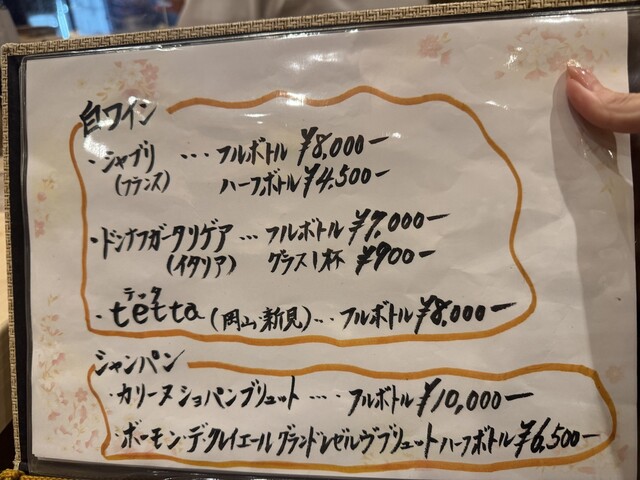 白ワイン
・シャブリ … フルボトル ¥8,000ー
(フランス) ハーフボトル ¥4,500ー
・ドンナフガータリゲア … フルボトル ¥7,000ー
(イタリア) グラス1杯 ¥900ー
テッタ
・tetta (岡山・新見)… フルボトル ¥8,000ー
シャンパン
・カリーヌショパンブリュット …. フルボトル ¥10,000ー
・ボーモン・デ・クレイエールグランドレゼルヴブリュットハーフボトル ¥6,500ー